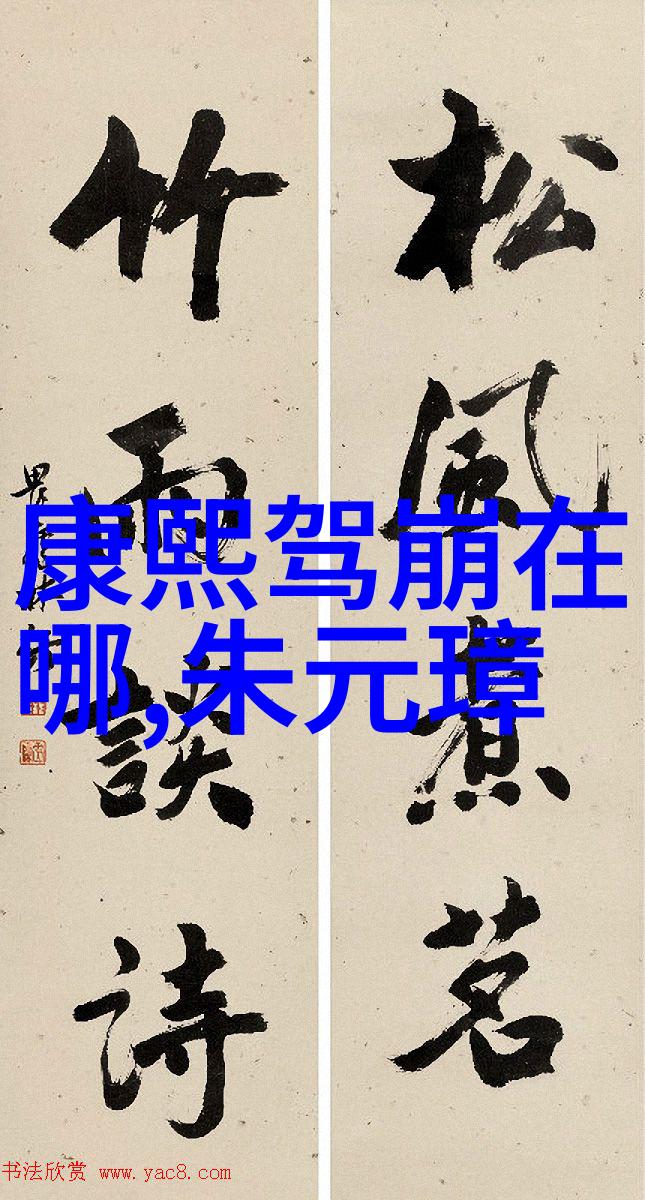 松風煮茗
竹雨談诗
康熙驾崩在
哪,朱元璋
书法欣赏 www.yac8.com